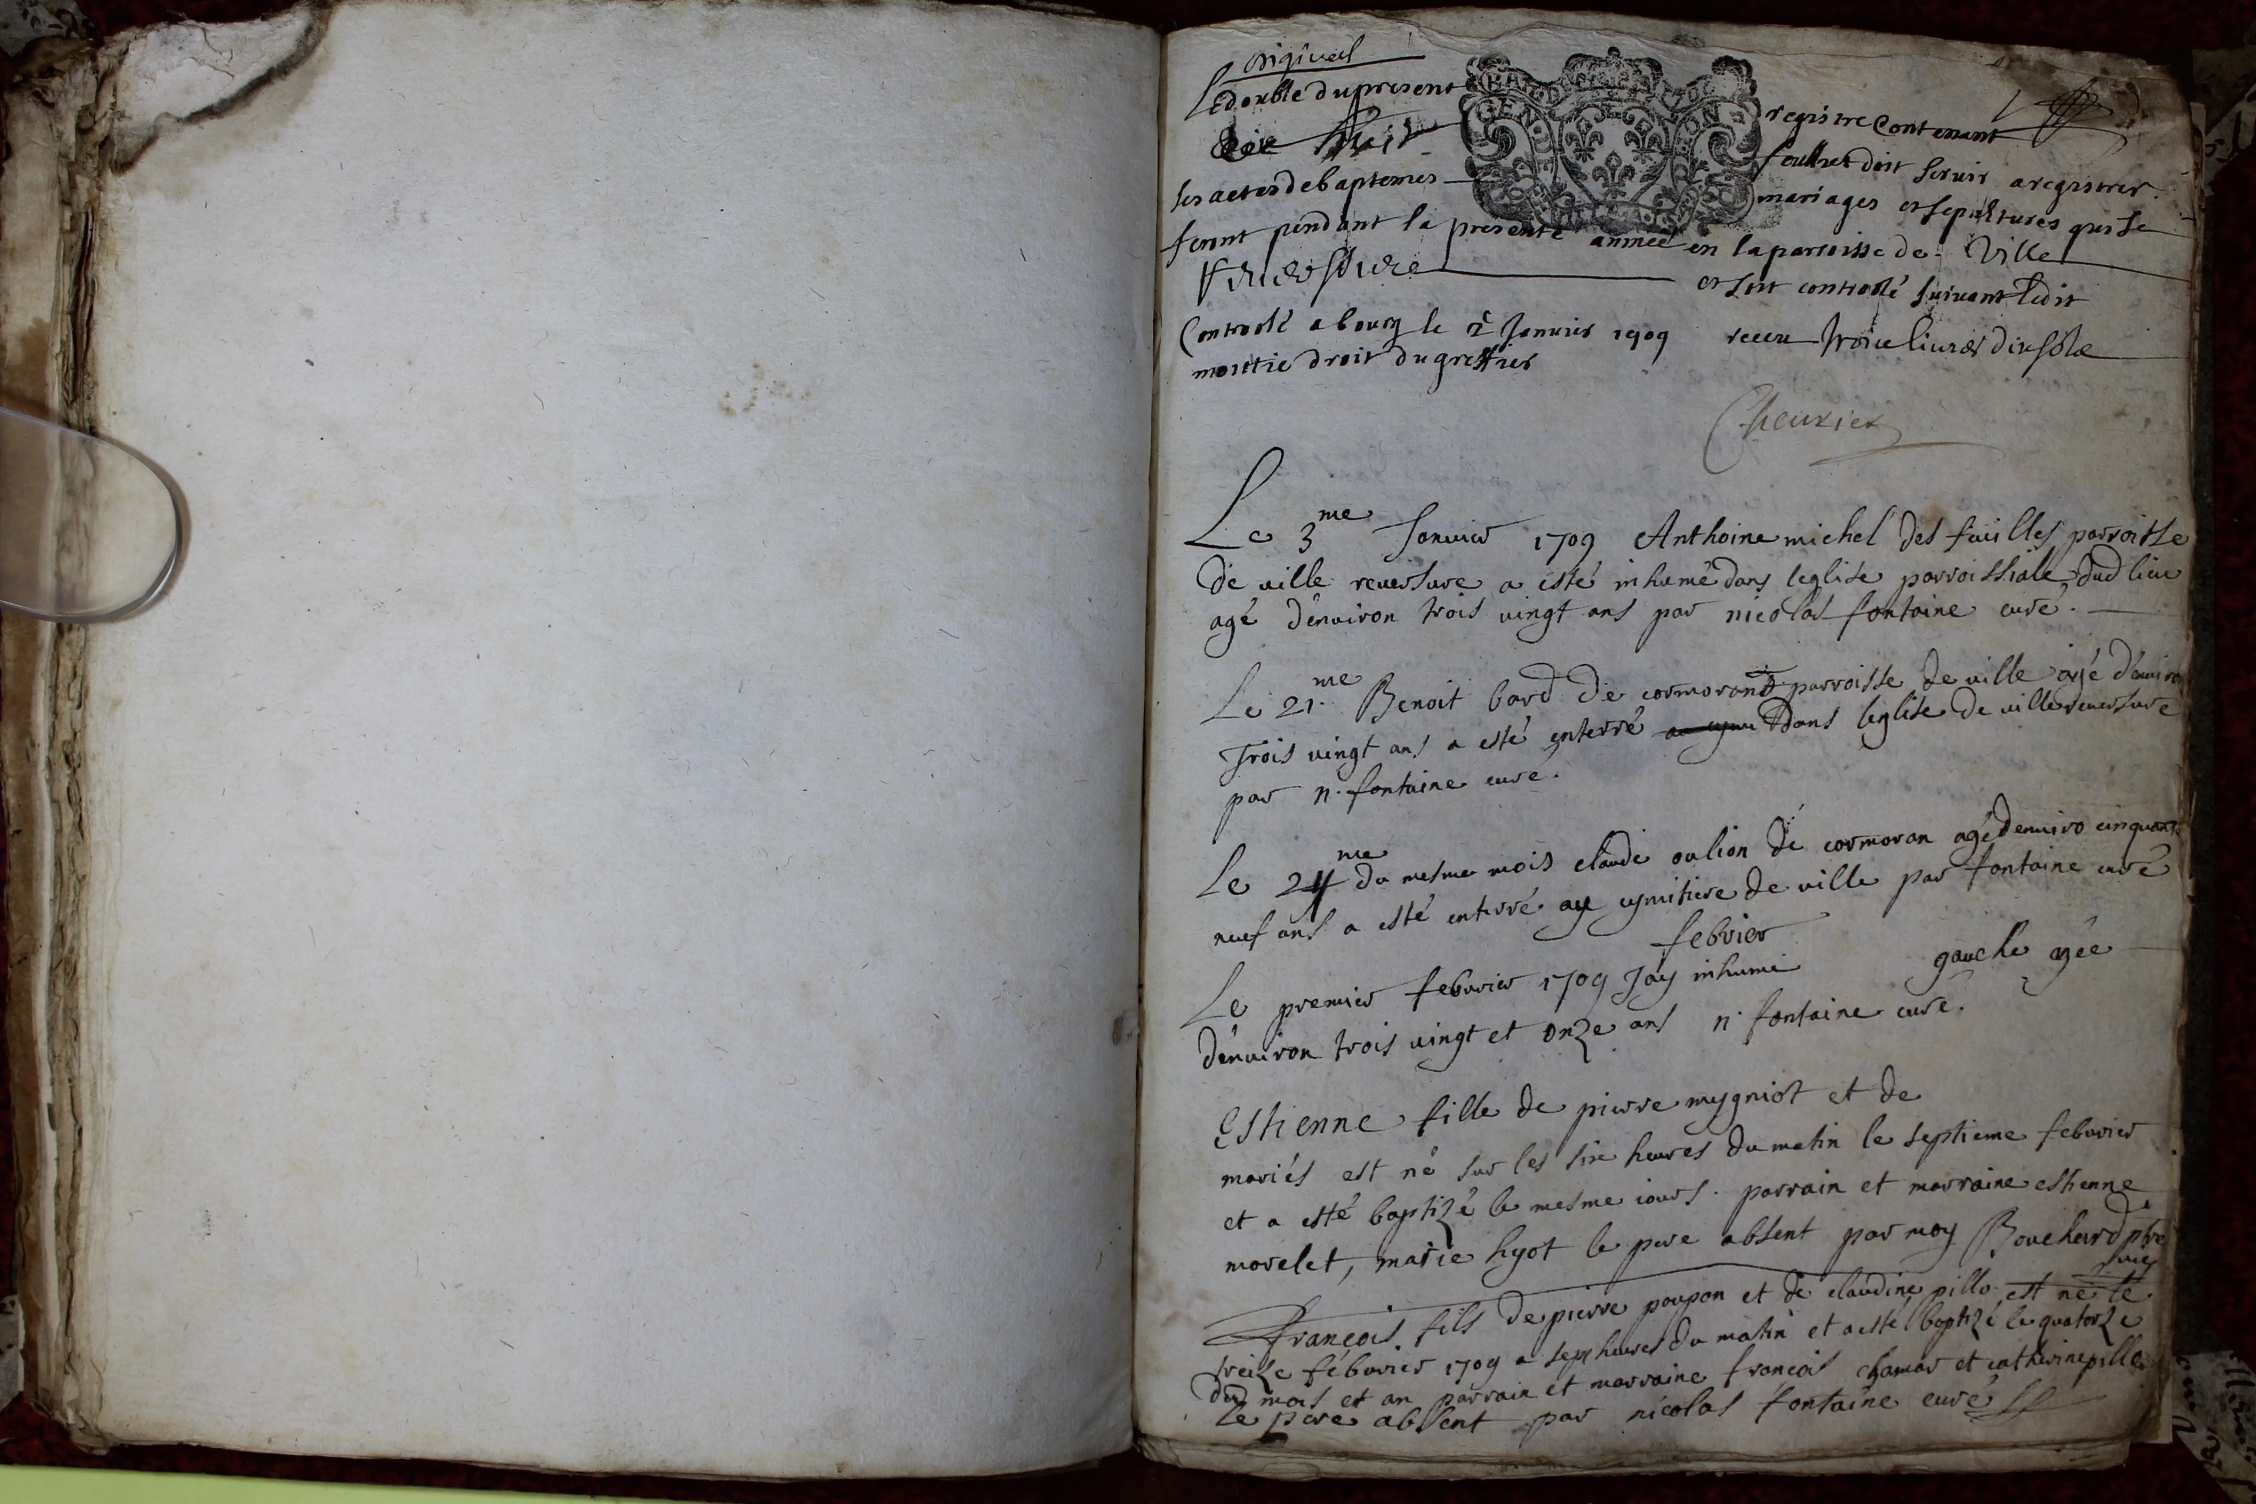 original
Le double du present registre Contenant
Dix huit feullet doit seruir a registrer
les actes de baptemes mariages et sepultures qui se
feront pendant la presente année en la parroisse de Ville
Reuersure et sera controlé suivant ledit
Controlé a bourg le 2e Januier 1709 receu trois liures dix sols
moitie droit du greffier
Cheurier
Le 3me Januier 1709 Anthoine michel des fuilles parroisse
de ville reuersure a esté inhumé dans leglise parroissiale dud lieu
agé d'enuiron trois vingt ans par nicolas fontaine curé.
Le 21.me Benoit bard de cormorand parroisse de ville agé d'enuiron
Trois vingt ans a esté enterré dans leglise de villereuersure
par n. fontaine curé.
Le 24me du mesme mois claude oulion de cormoran agé denuiro cinquante
neuf ans a esté enterré au cymitiere de ville par fontaine curé
febvier
Le premier febvrier 1709 Jay inhumé gauche agée
d'enuiron trois vingt et onze ans n. fontaine curé.
Estienne fille de pierre mygniot et de
mariés est né sur les six heures du matin le septieme febvrier
et a esté baptizé le mesme iours. parrain et marraine estienne
morelet, marie hyot le pere absent par moy Bouchard ptre
vic
François fils de pierre poupon et de claudine pillo est né le
treize febvrier 1709 a sept heures du matin et a esté baptizé le quatorze
dud mois et an parrain et marraine francois chamar et catherine pillo
le pere absent par nicolas fontaine curé